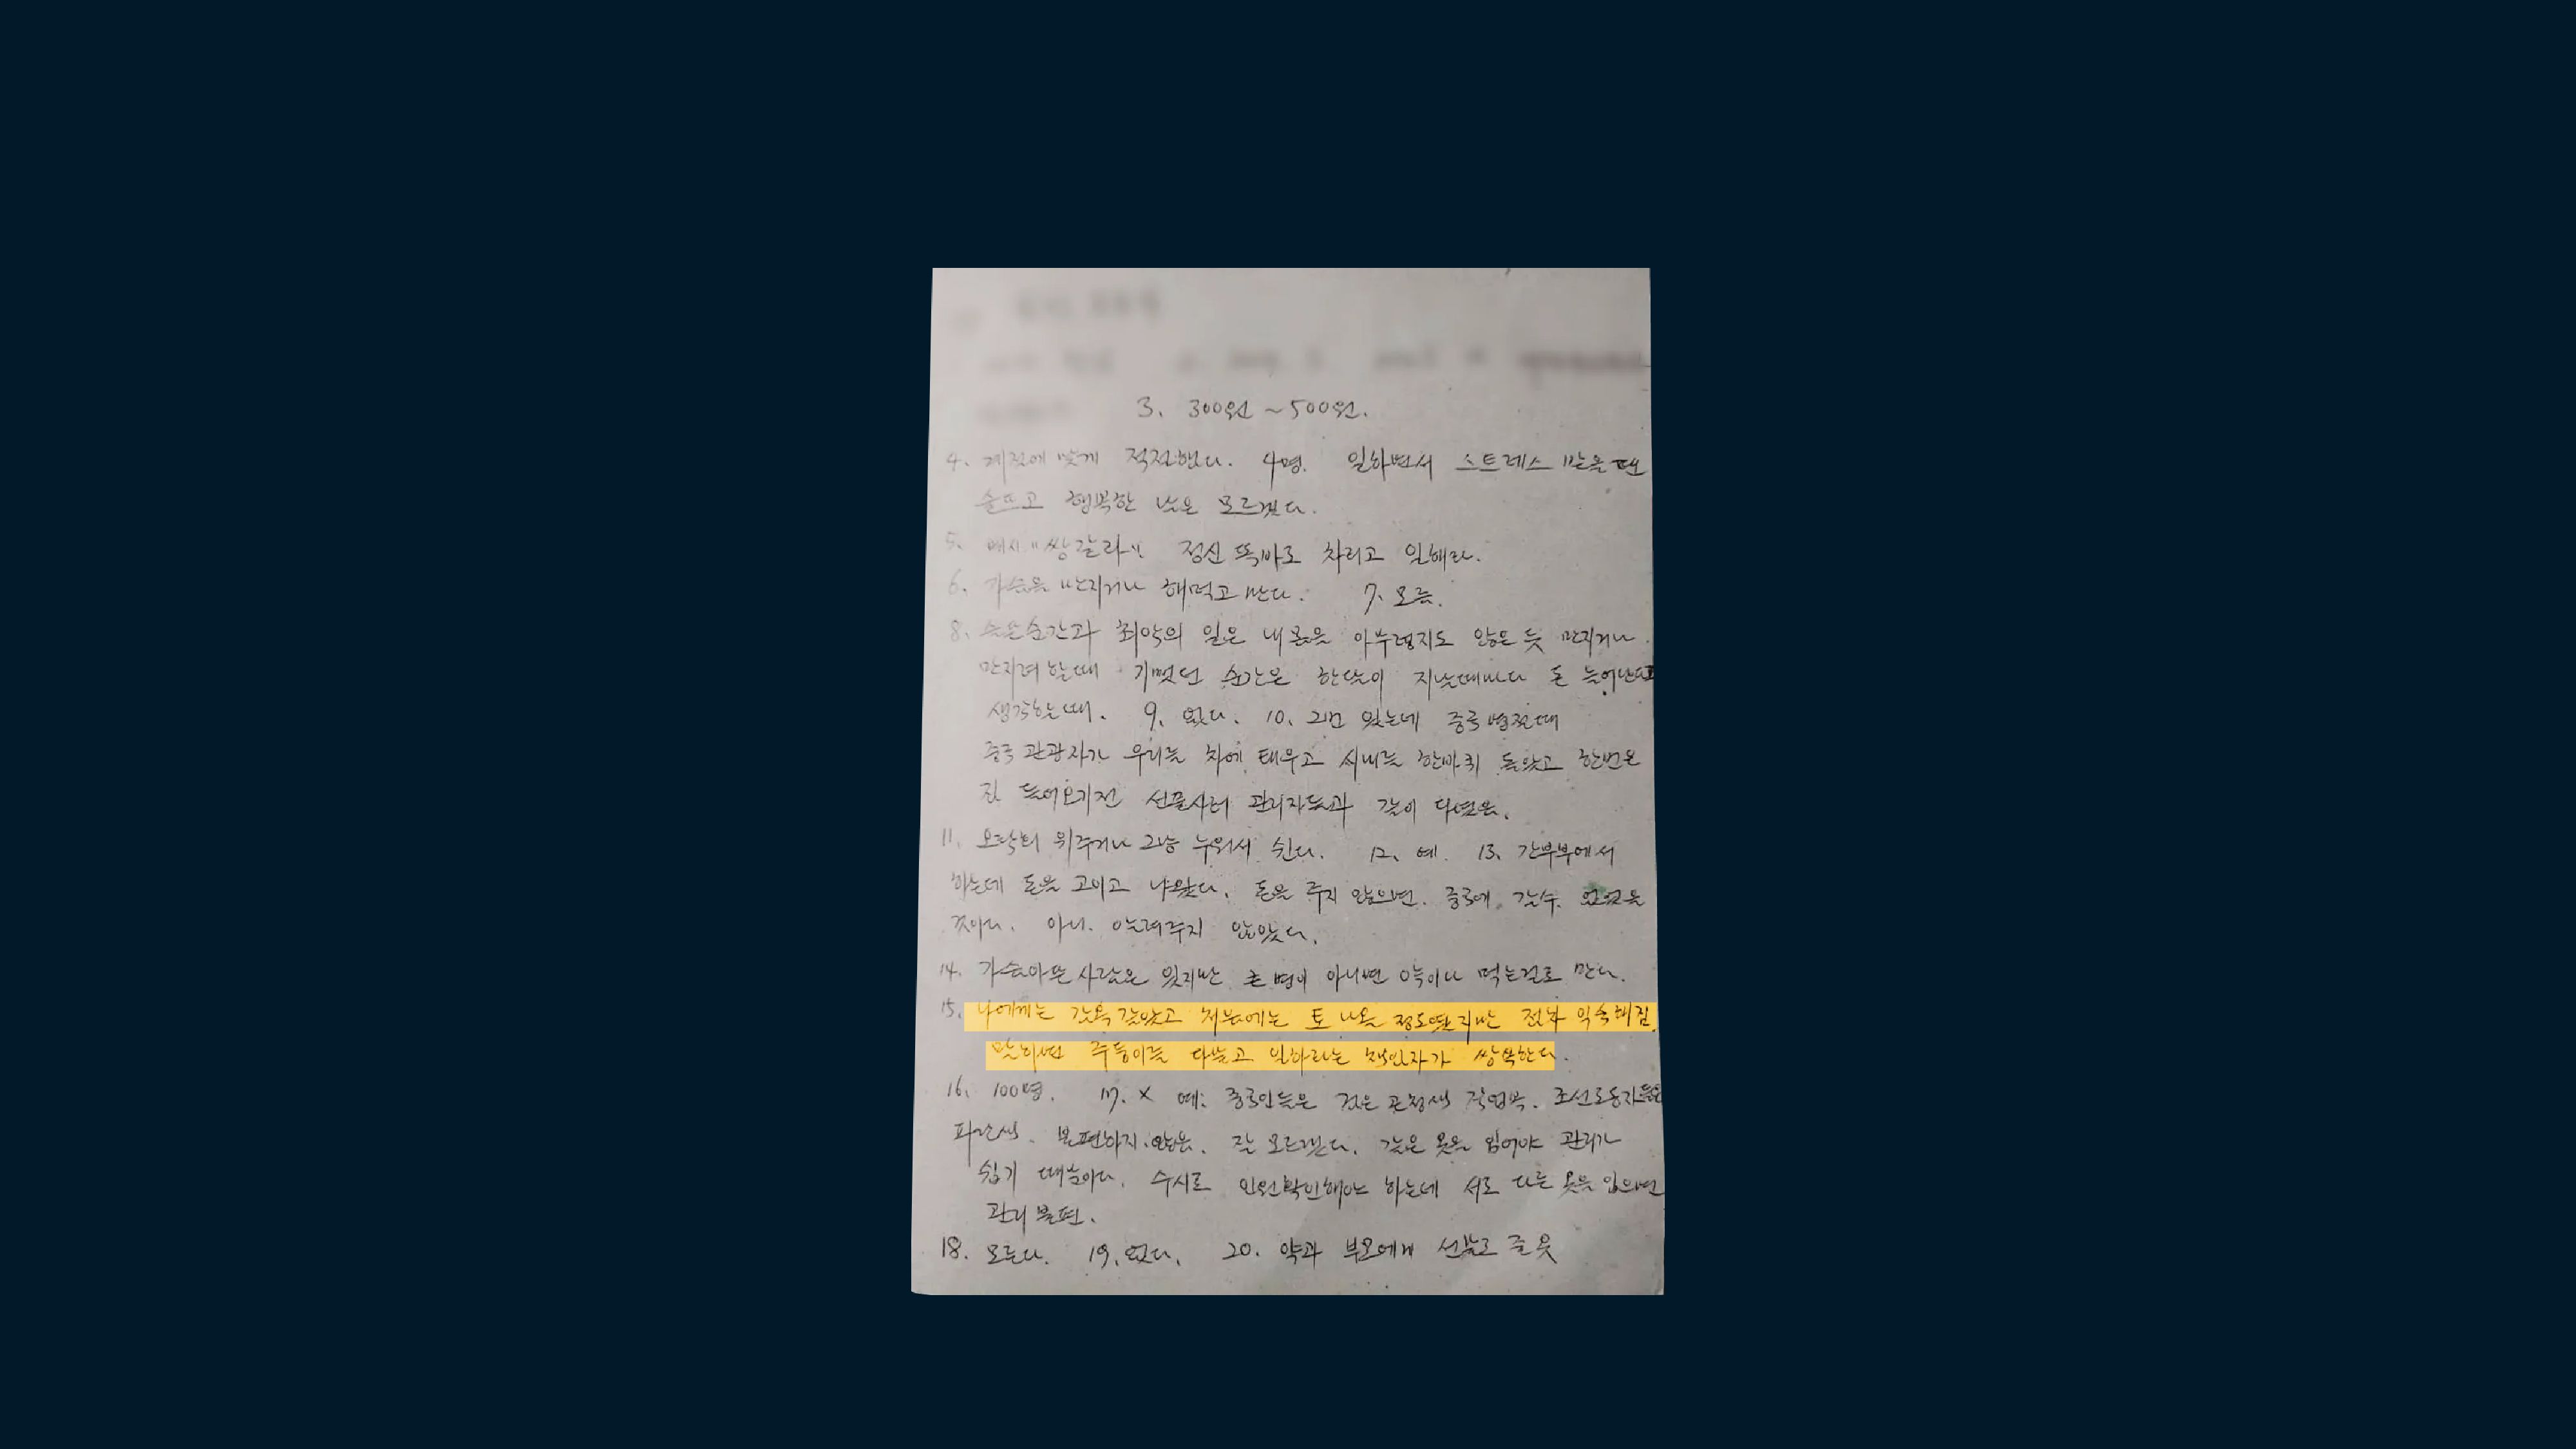 3. 300원 ~ 500원.
4. 계절에 맞게 적절했다. 4명. 일하면서 스트레스 받을 때
슬프고 행복한 날은 모르겠다.
5. 메시 "쌍갈라". 정신 똑바로 차리고 일해라.
6. 가슴을 만지거나 해먹고 만다. 7. 모름.
8. 슬픈 순간과 최악의 일은 내 몸을 아무렇지도 않은 듯 만지거나
만지려 할때 기뻤던 순간은 한달이 지날때마다 돈 늘어난다고
생각할때. 9. 없다. 10. 2번 있는데 중국 명절때
중국 관광자가 우리를 차에 태우고 시내를 한바퀴 돌았고 한번은
집 들어오기전 선물사러 관리자들과 같이 다녔음.
11. 오락회 위주거나 그냥 누워서 쉰다. 12. 예. 13. 간부부에서
하는데 돈을 고이고 나왔다. 돈을 주지 않으면. 중국에 갈수 없었을
것이다. 아니. 알려주지 않았다.
14. 가슴아픈 사람은 있지만 큰 병이 아니면 약이나 먹는걸로 만다.
15. 나에게는 감옥 같았고 처음에는 토 나올 정도였지만 점차 익숙해짐.
말하면 주둥이를 다물고 일하라는 책임자가 쌍욕한다.
16. 100명. 17. X 예: 중국인들은 검은 곤청색 작업복. 조선로동자들은
파란색. 불편하지 않음. 잘 모르겠다. 같은 옷을 입어야 관리가
쉽기 때문이다. 수시로 인원확인해야 하는데 서로 다른 옷을 입으면
관리 불편.
18. 모른다. 19. 없다. 20. 약과 부모에게 선물로 줄 옷